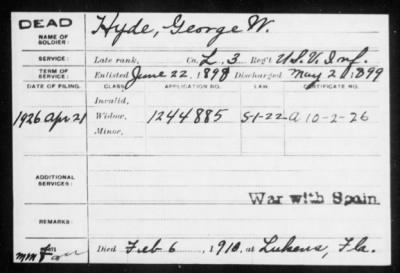 DEAD
NAME OF SOLDIER:
Hyde, George W.
SERVICE:
Late rank, Co. L. 3 Reg't U.S.V. Inf.
TERM OF SERVICE:
Enlisted June 22, 1898 Discharged May 2, 1899
DATE OF FILING. CLASS. APPLICATION NO. LAW. CERTIFICATE NO.
Invalid,
1926 Apr 21 Widow, 1244885 10-2-26
Minor,
ADDITIONAL SERVICES:
War with Spain
REMARKS:
Died Feb 6, 1910, at Lukens, Fla.